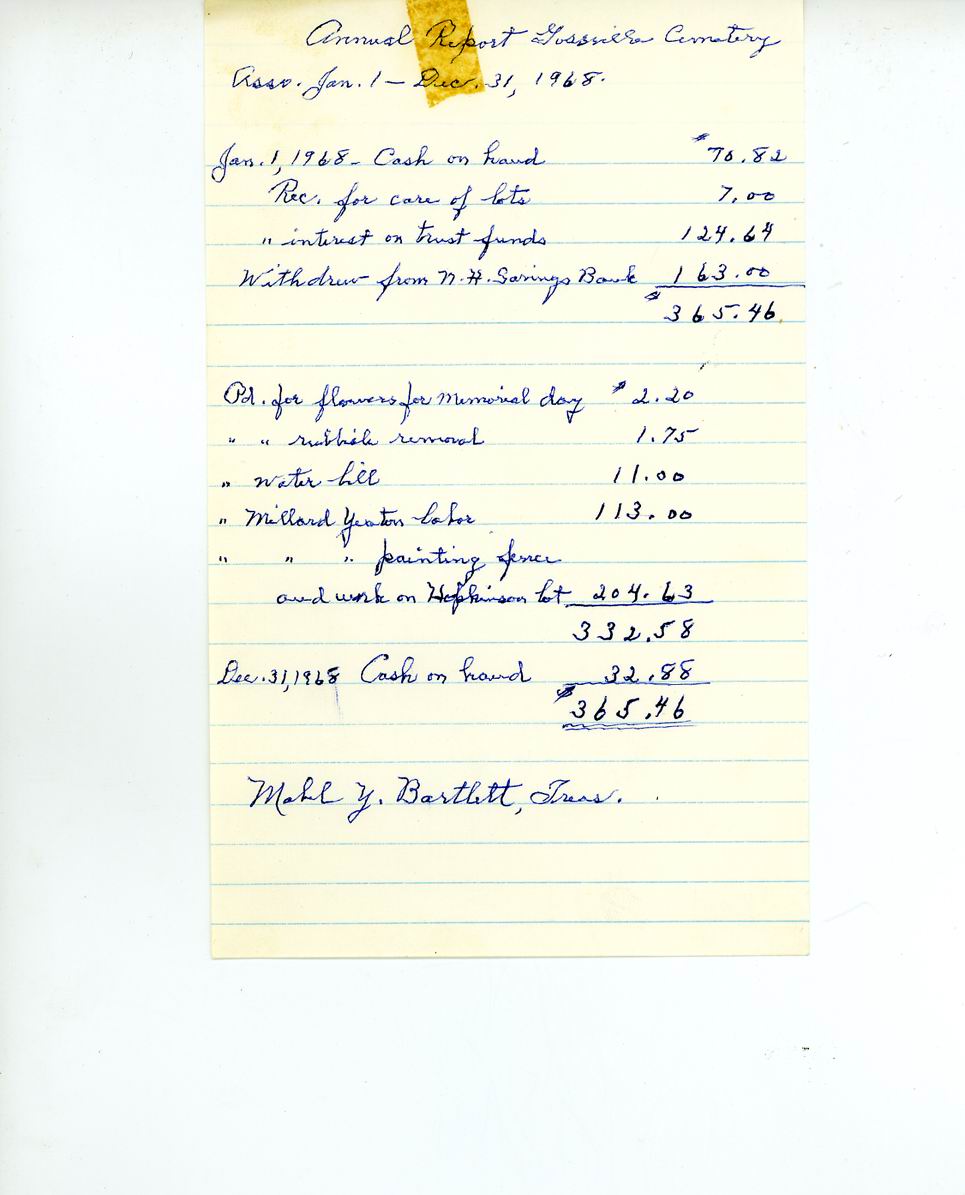 Annual Report Gossville Cemetery
Asso. Jan. 1 - Dec. 31, 1968.
Jan. 1, 1968 - Cash on hand $70.82
Rec. for care of lots 7.00
" interest on trust funds 124.64
Withdrew from N.H. Savings Bank 163.00
$365.46
Pd. for flowers for Memorial day $2.20
" " rubbish removal 1.75
" water bill 11.00
" Millard Yeaton labor 113.00
" " " painting fence
and work on Hopkinson lot 204.63
332.58
Dec. 31, 1968 Cash on hand 32.88
$365.46
Mabel Y. Bartlett, Treas.